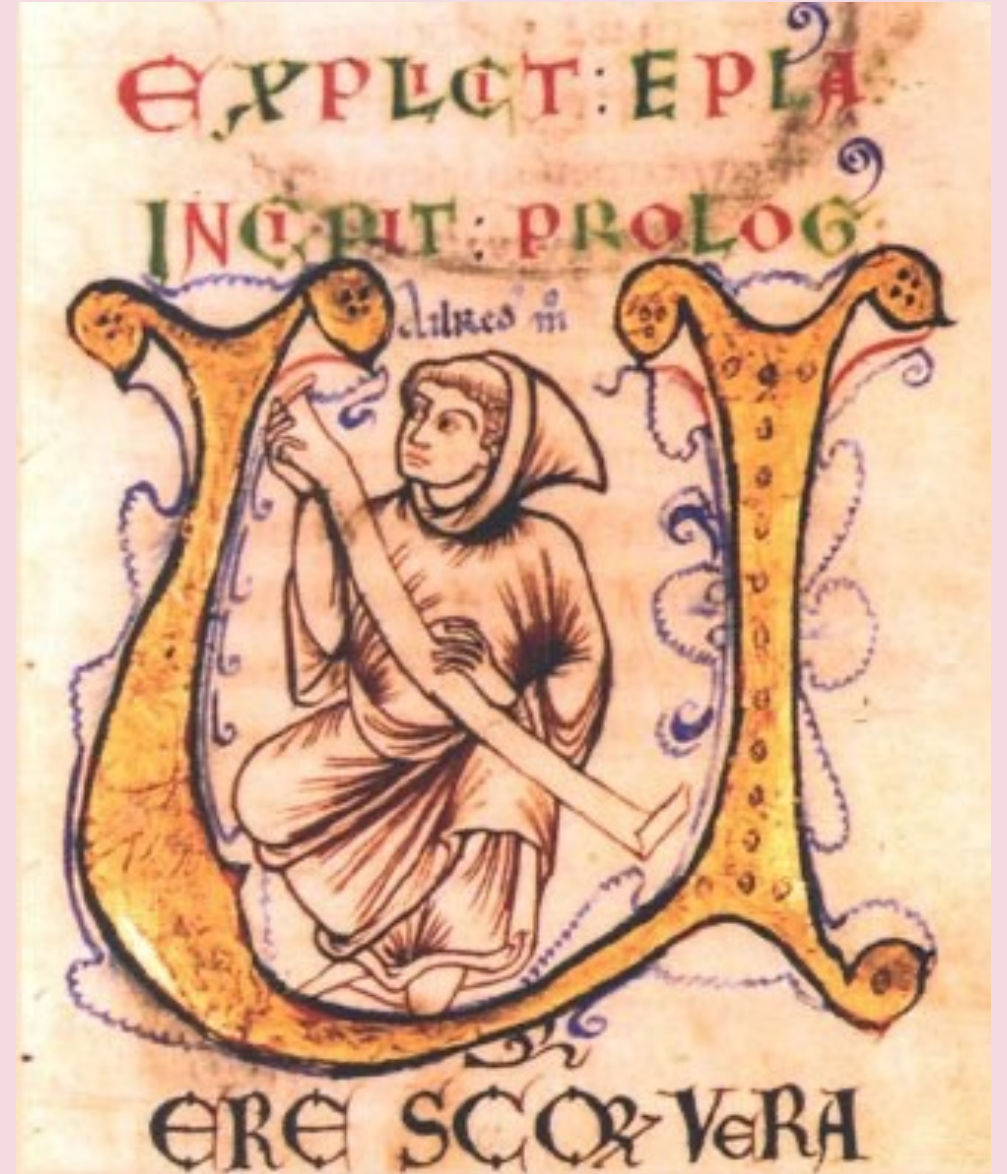 EXPLICIT : EPLA
INCIPIT : PROLOGꝰ
U
ERE SCOꝝ VERA